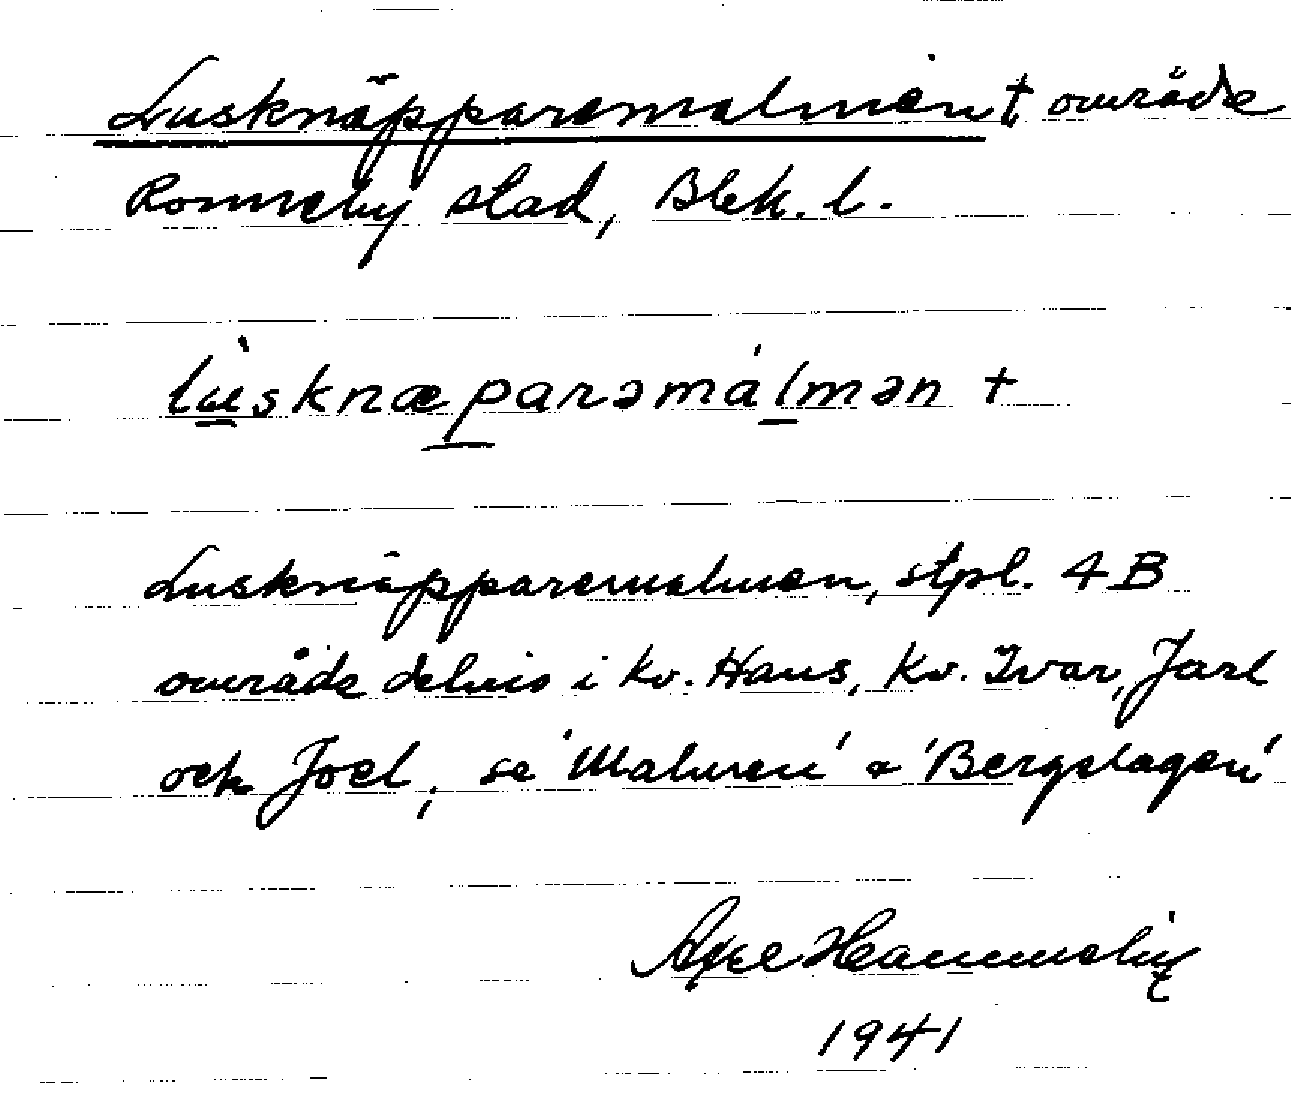 Lusknäpparemalmen † område
Ronneby stad, Blek. l.
lùsknæparəmálmən +
Lusknäpparemalmen, stpl. 4B
område delvis i kv. Hans, Kv. Ivar, Jarl
och Joel, se 'Malmen' o 'Bergslagen'
Axel Hammelin
1941